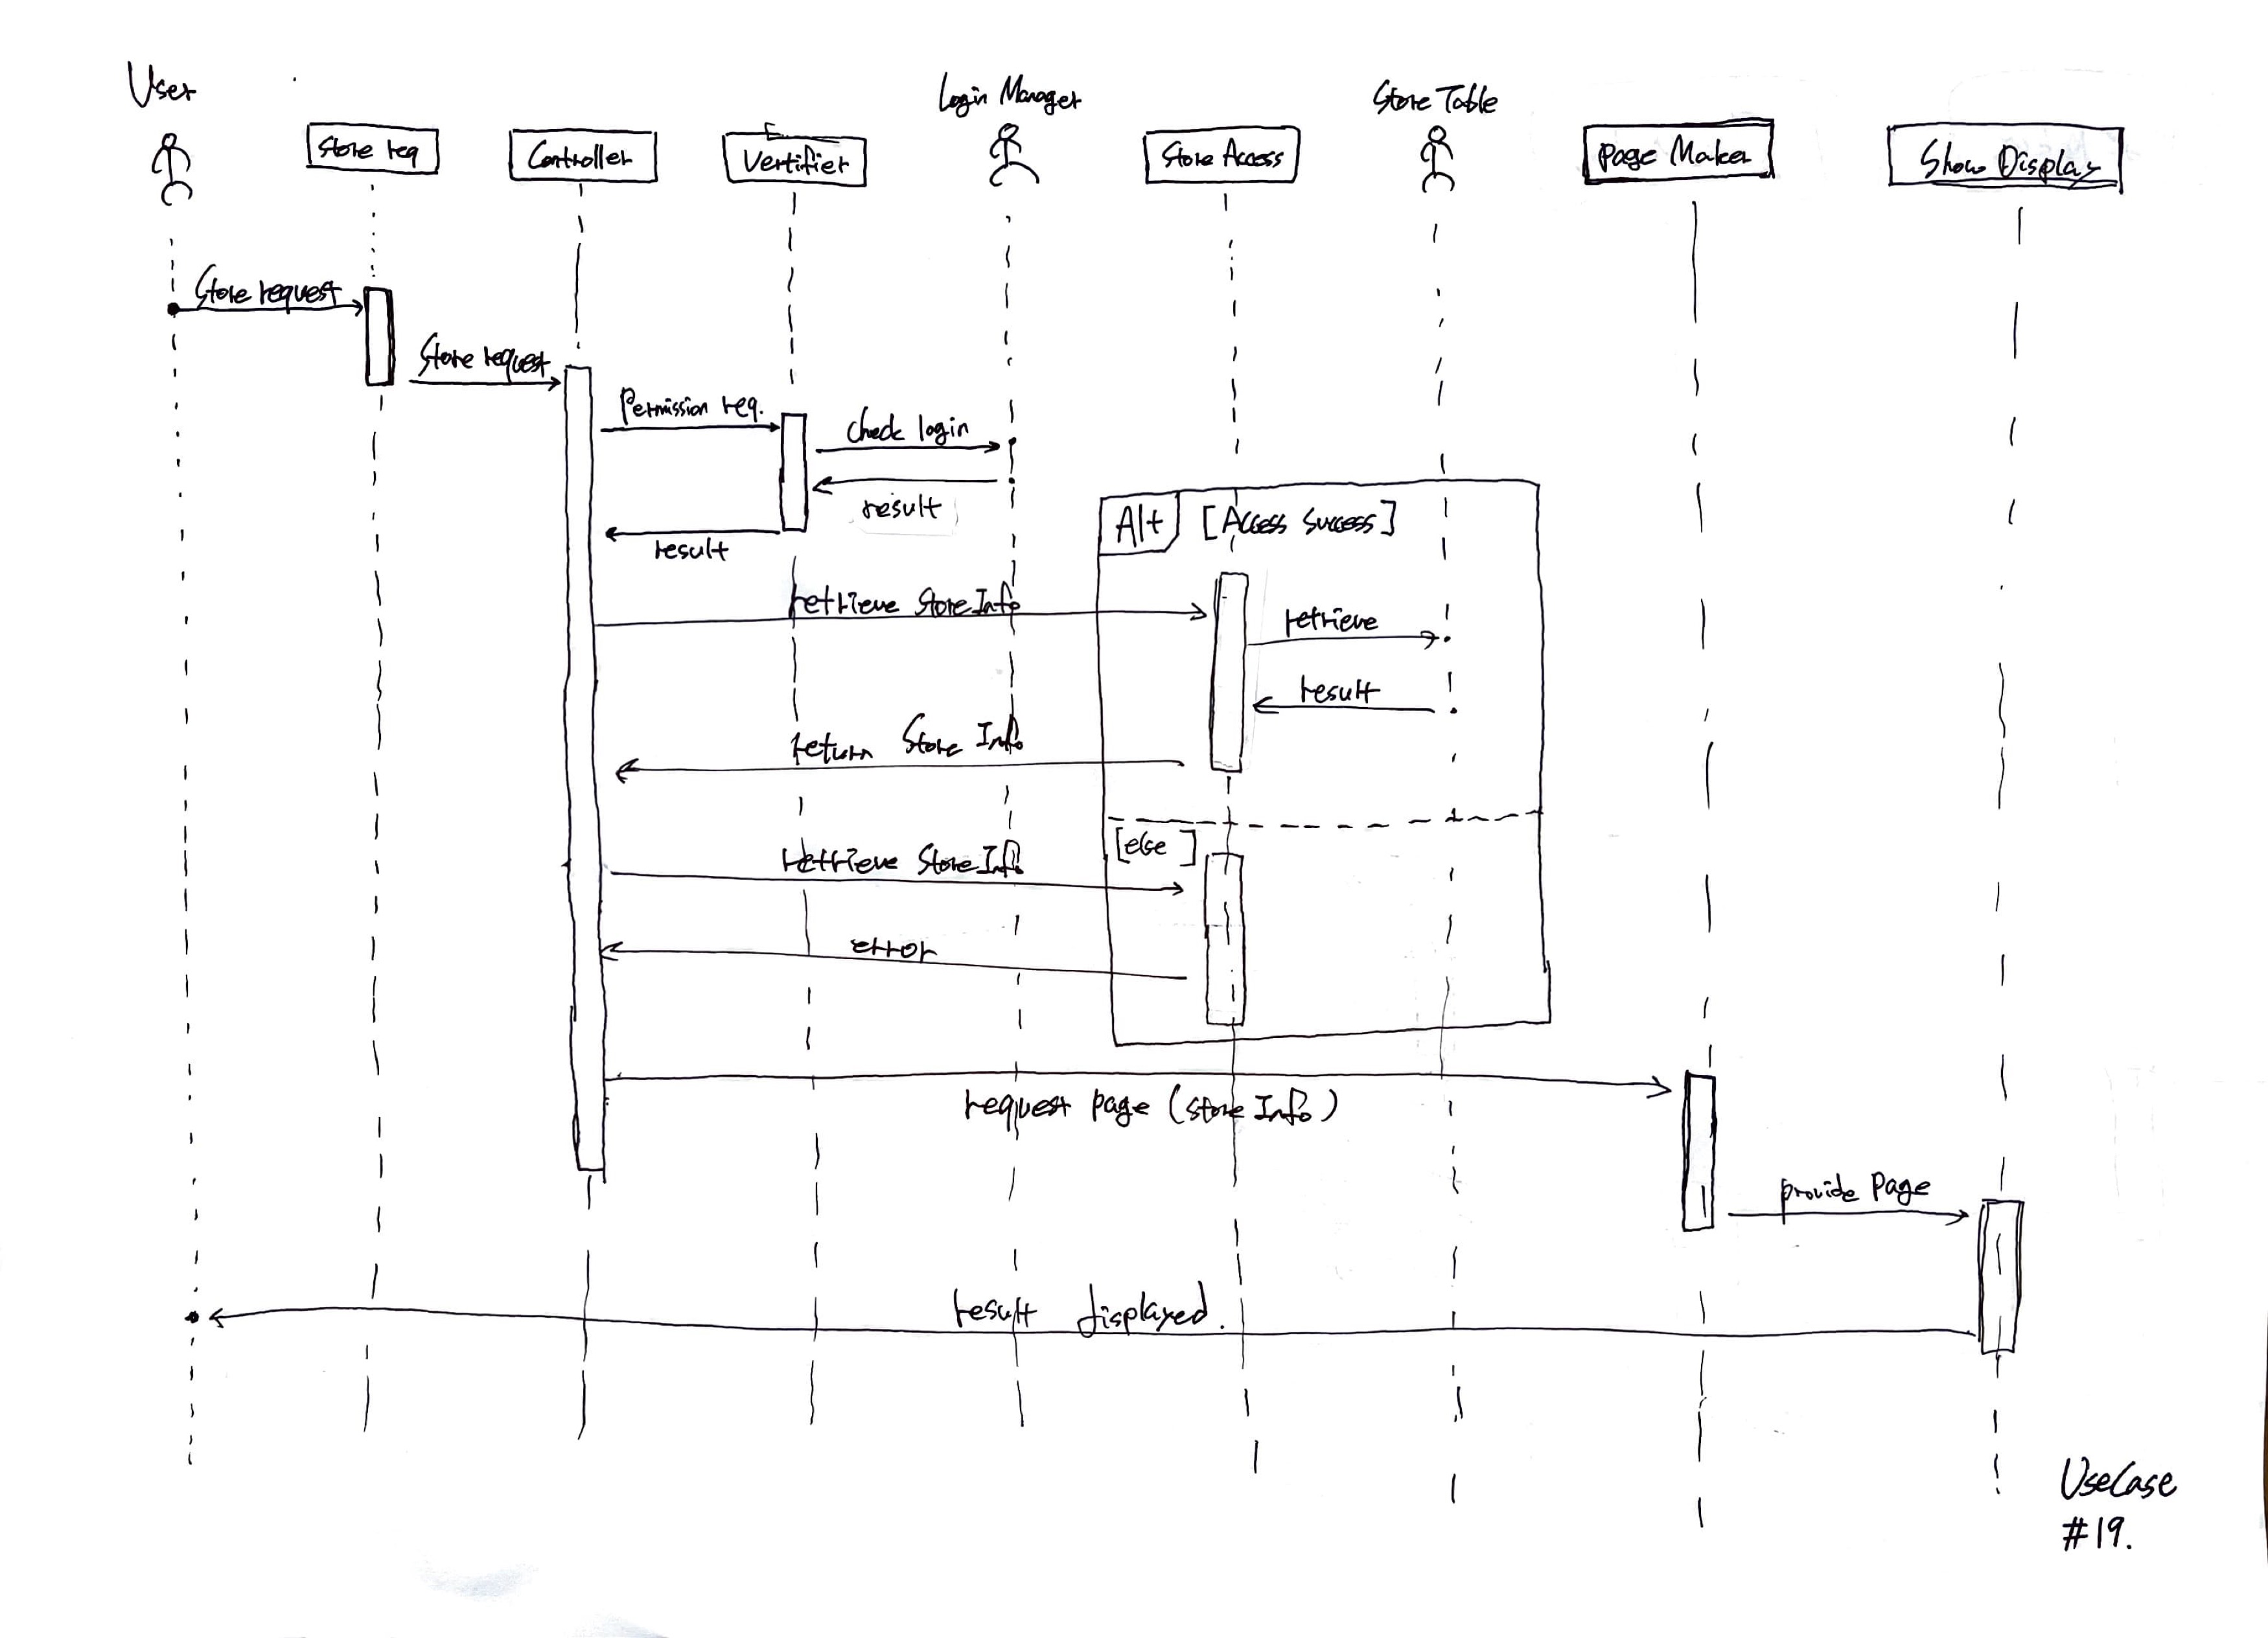 User
Login Manager
Store Table
Store req
Controller
Vertifier
Store Access
Page Maker
Show Display
Store request
Store request
Permission req.
check login
result
result
Alt [Access Success]
retrieve Store Info
retrieve
result
return Store Info
[else]
retrieve Store Info
error
request page (store Info)
provide Page
result displayed.
UseCase
#19.